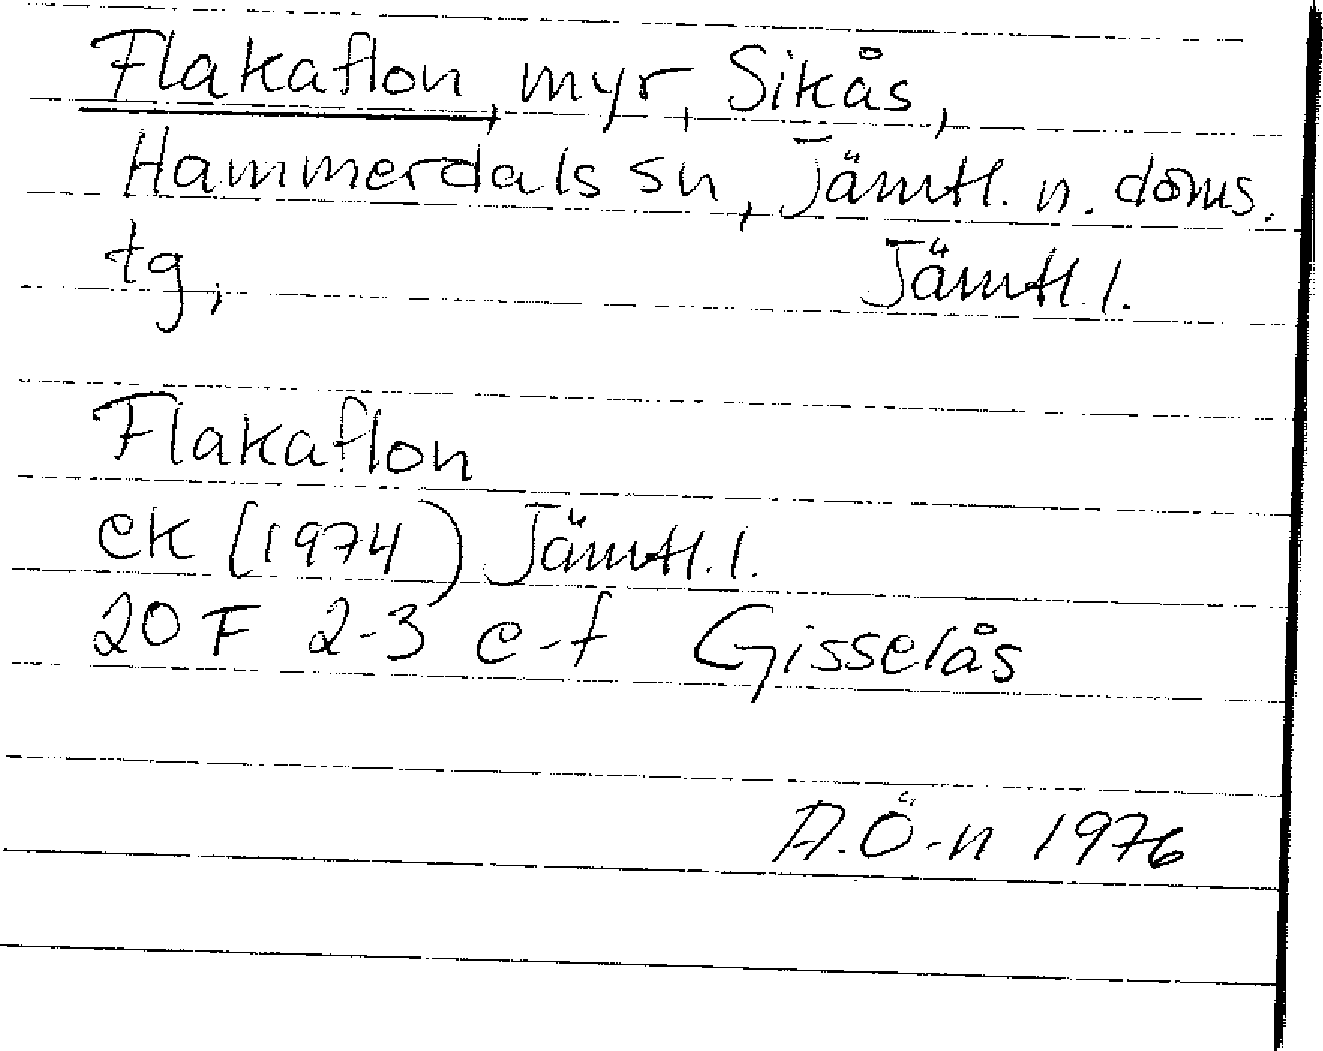 Flakaflon, myr, Sikås,
Hammerdals sn, Jämtl. n. doms.
tg, Jämtl.
Flakaflon
ek (1974) Jämtl. l.
20 F 2-3 e-f Gisselås
A.Ö-n 1976